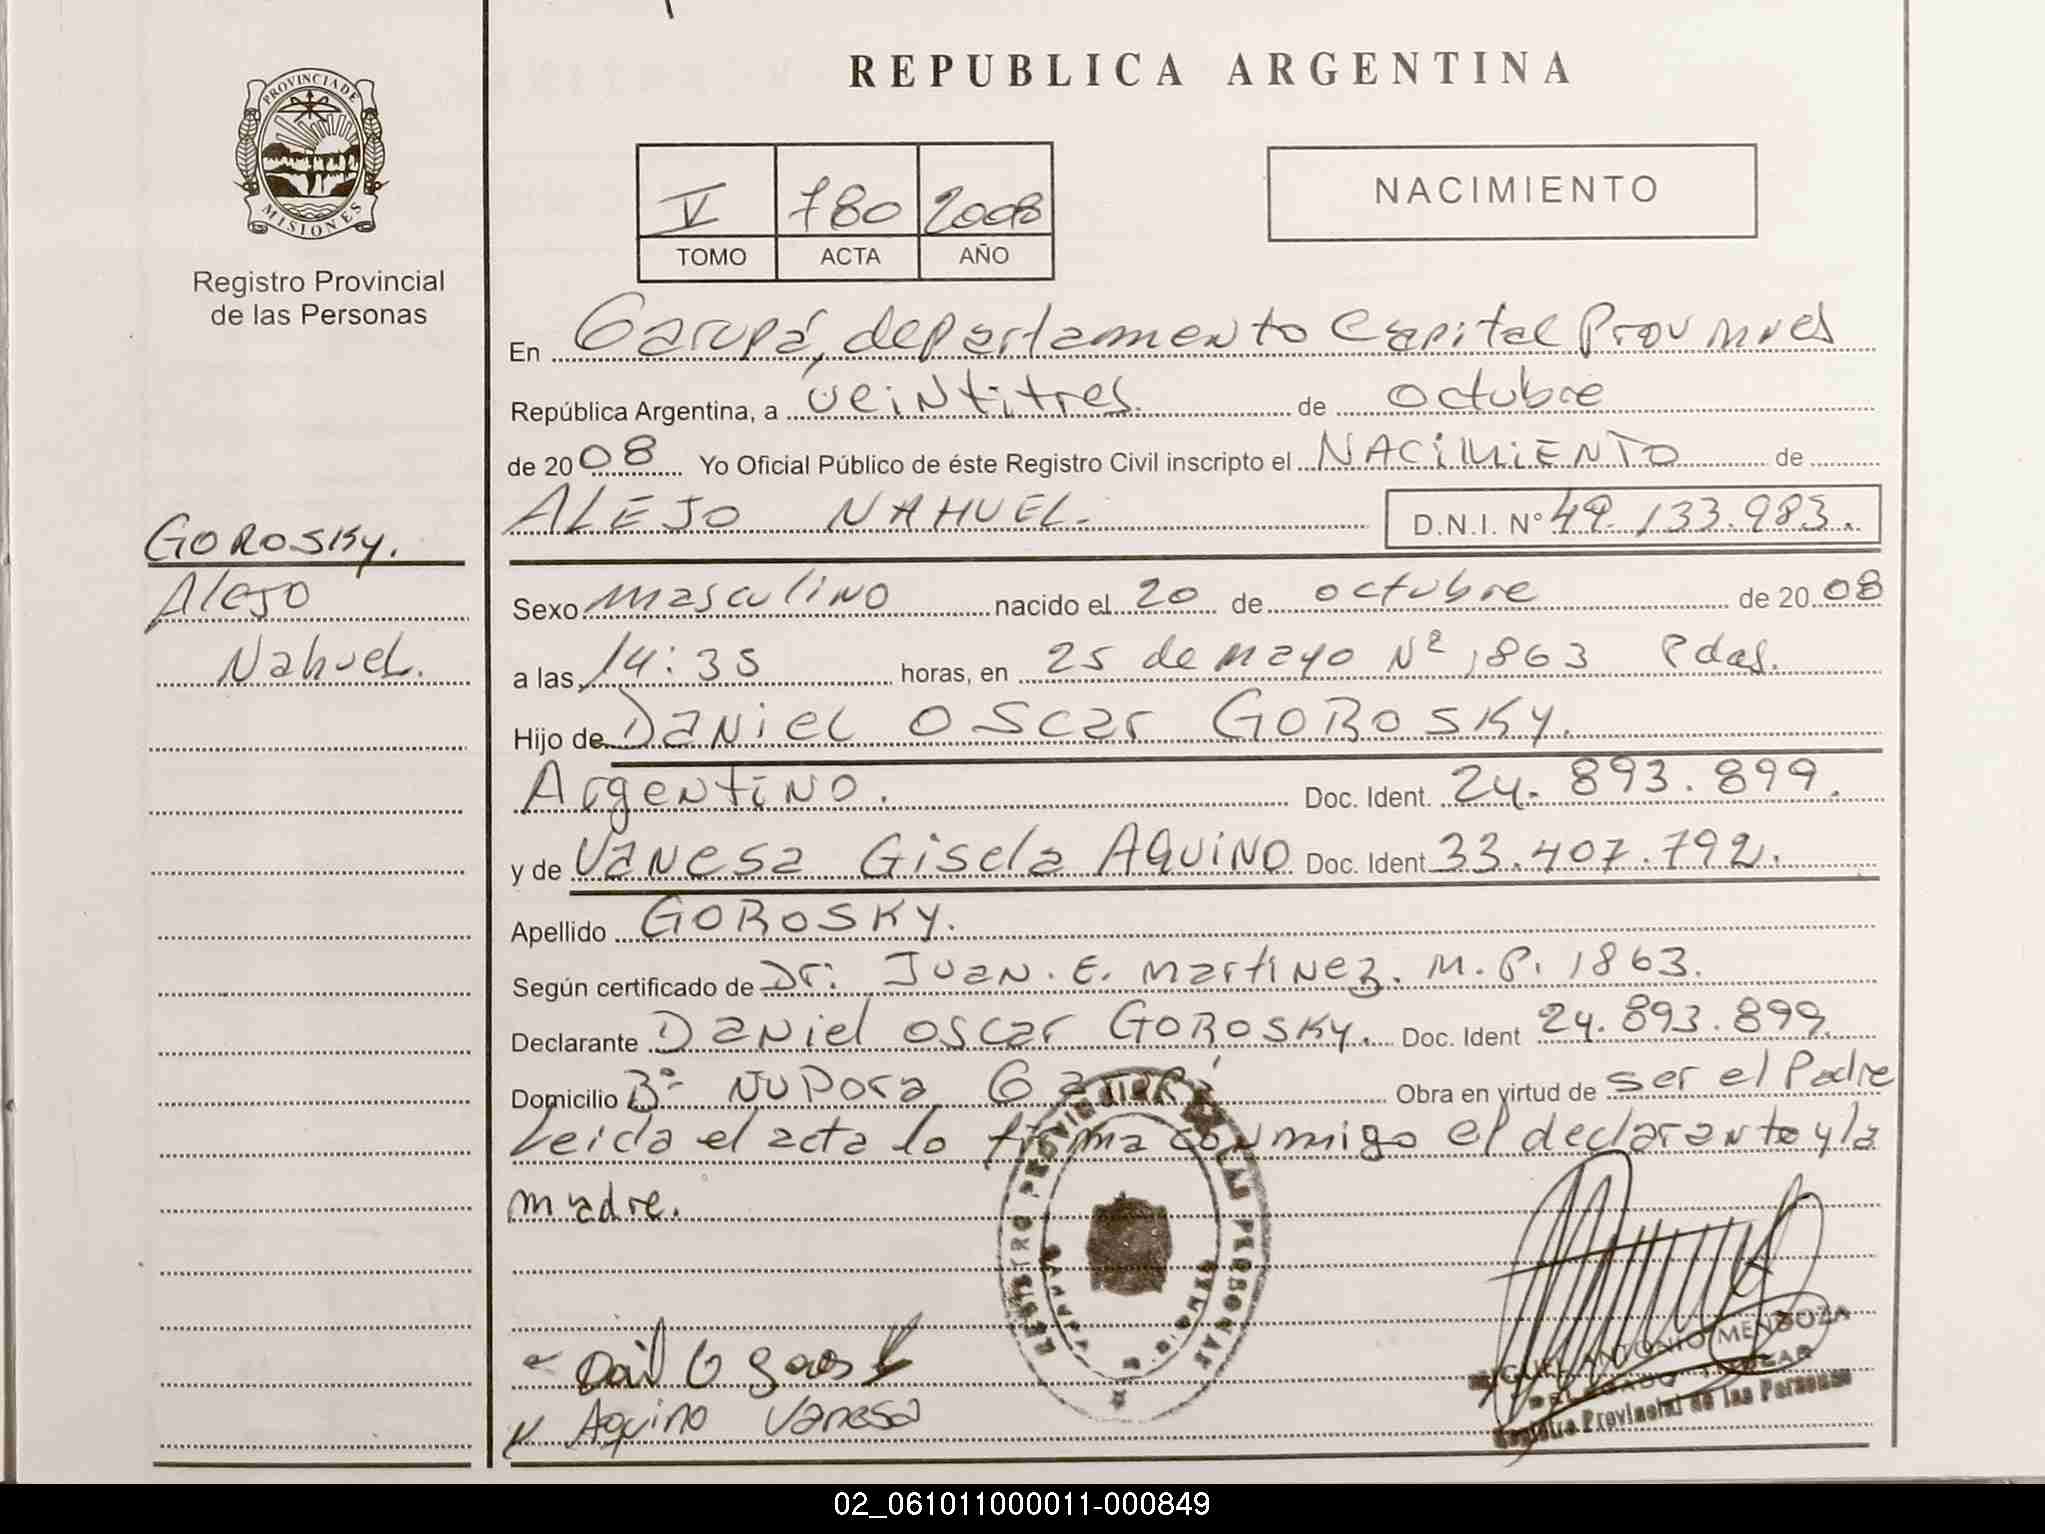 PROVINCIA DE
MISIONES
Registro Provincial
de las Personas
GOROSKY.
Alejo
Nahuel.
REPUBLICA ARGENTINA
V 780 2008
TOMO ACTA AÑO
NACIMIENTO
En Garupá, departamento Capital Prov Mnes
República Argentina, a veintitres. de octubre
de 2008 Yo Oficial Público de éste Registro Civil inscripto el NACIMIENTO de
ALEJO NAHUEL. D.N.I. Nº 49.133.983.
Sexo masculino nacido el 20 de octubre de 2008
a las 14:35 horas, en 25 de mayo Nº 1863 Pdas.
Hijo de Daniel Oscar GOROSKY.
Argentino. Doc. Ident. 24.893.899.
y de Vanesa Gisela AQUINO Doc. Ident 33.407.792.
Apellido GOROSKY.
Según certificado de Dr: Juan. E. Martinez. M.P. 1863.
Declarante Daniel Oscar GOROSKY. Doc. Ident 24.893.899.
Domicilio Bº Ñu Pora Obra en virtud de ser el Padre
Leida el acta lo firma conmigo el declarante y la
madre.
REGISTRO PROVINCIAL DE LAS PERSONAS
Aquino Vanesa
MIGUEL ANTONIO MENDOZA
DELEGADO TITULAR
Registro Provincial de las Personas
02_061011000011-000849